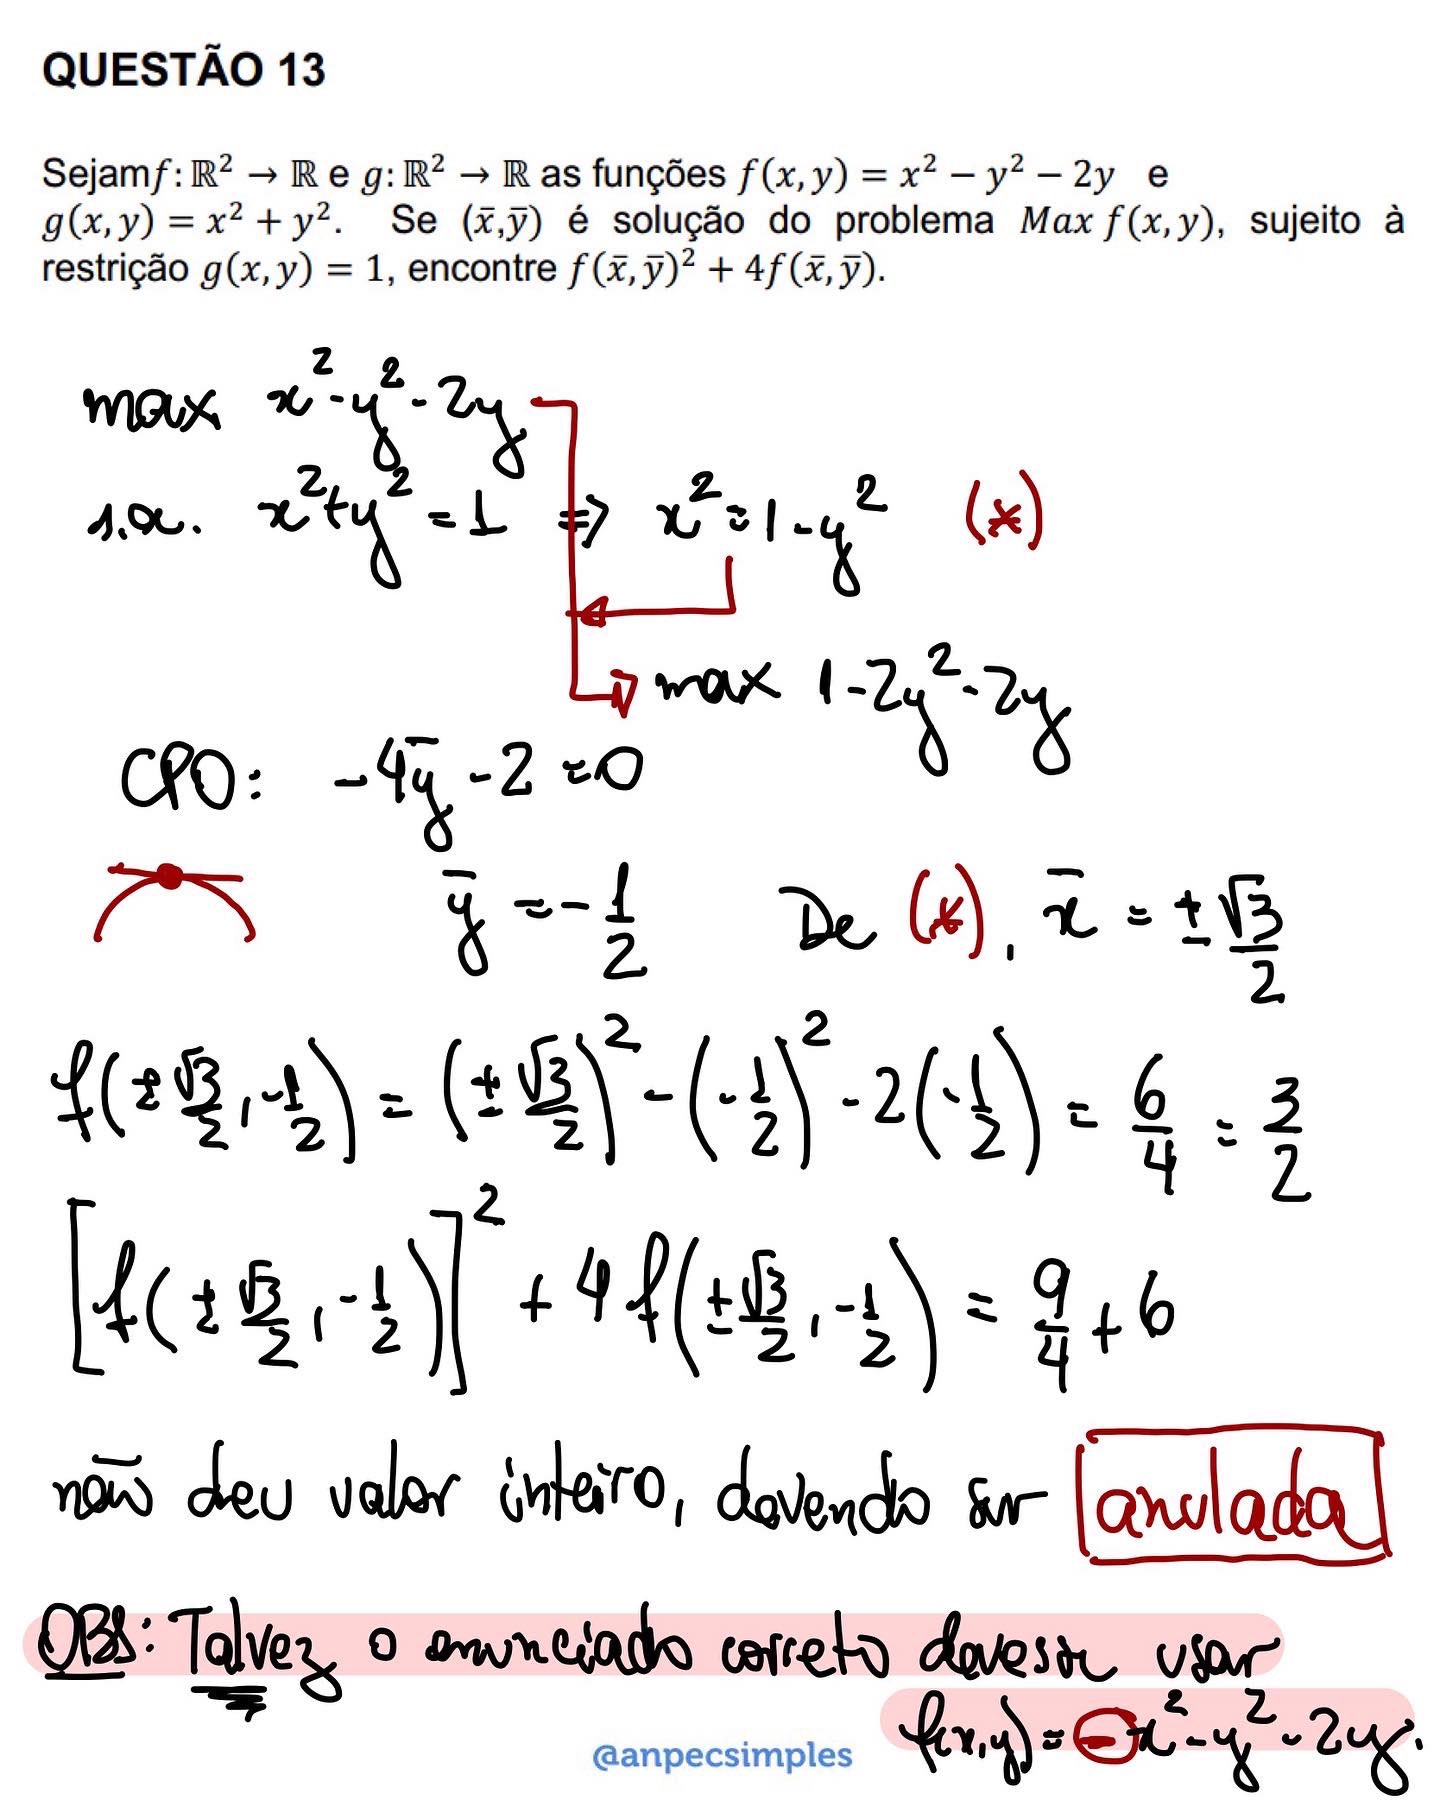 QUESTÃO 13
Sejamf: ℝ² → ℝ e g: ℝ² → ℝ as funções f(x, y) = x² − y² − 2y e
g(x, y) = x² + y². Se (x̄,ȳ) é solução do problema Max f(x, y), sujeito à
restrição g(x, y) = 1, encontre f(x̄, ȳ)² + 4f(x̄, ȳ).
max x² - y² - 2y
s.a. x² + y² = 1 ⇒ x² = 1 - y² (*)
max 1 - 2y² - 2y
CPO: -4ȳ - 2 = 0
ȳ = -1/2 De (*), x̄ = ±√3/2
f(±√3/2, -1/2) = (±√3/2)² - (-1/2)² - 2(-1/2) = 6/4 = 3/2
[f(±√3/2, -1/2)]² + 4f(±√3/2, -1/2) = 9/4 + 6
não deu valor inteiro, devendo ser anulada
OBS: Talvez o enunciado correto devesse usar
f(x,y) = -x² - y² - 2y.
@anpecsimples